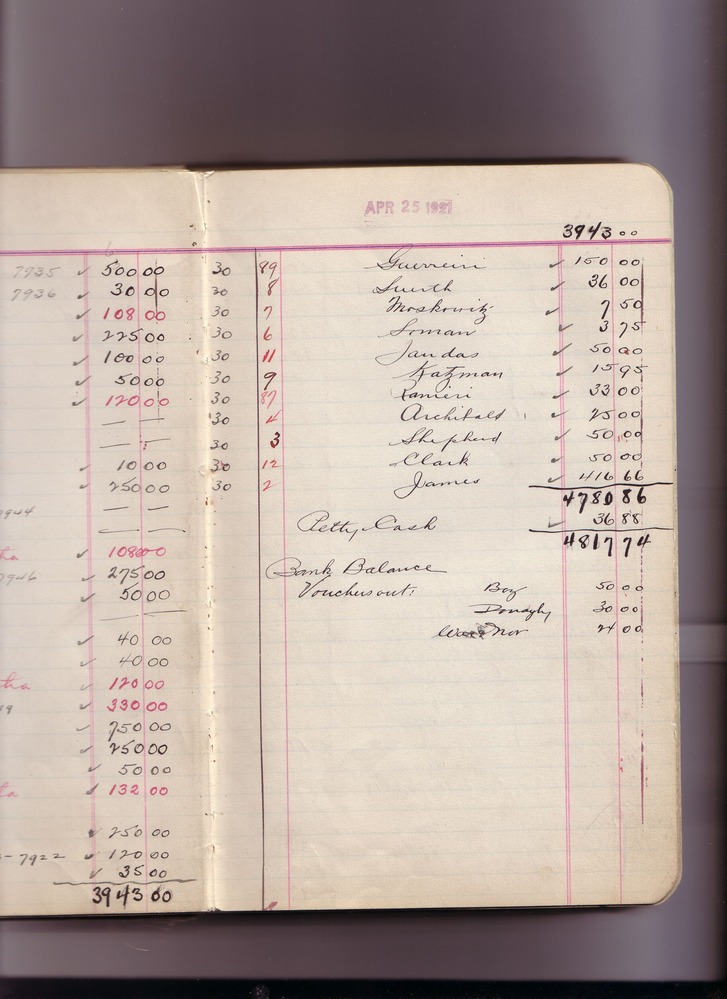 7935 ✓ 500 00
7936 ✓ 30 00
✓ 108 00
✓ 225 00
✓ 100 00
✓ 50 00
✓ 120 00
— —
— —
✓ 10 00
✓ 250 00
7944 — —
— —
✓ 108 00
7946 ✓ 275 00
✓ 50 00
✓ 40 00
✓ 40 00
✓ 120 00
✓ 330 00
✓ 750 00
✓ 250 00
✓ 50 00
✓ 132 00
✓ 250 00
- 7922 ✓ 120 00
✓ 35 00
3943 00
APR 25 1921
3943 00
30 89 Guerreiri ✓ 150 00
30 8 Suerth ✓ 36 00
30 7 Moskowitz ✓ 7 50
30 6 Soman ✓ 3 75
30 11 Jandas ✓ 50 00
30 9 Katzman ✓ 15 95
30 87 Ranieri ✓ 33 00
30 4 Archibald ✓ 25 00
30 3 Shepherd ✓ 50 00
30 12 Clark ✓ 50 00
30 2 James ✓ 416 66
4780 86
Petty Cash ✓ 36 88
4817 74
Bank Balance
Vouchers out: Boz 50 00
Donaghy 30 00
24 00